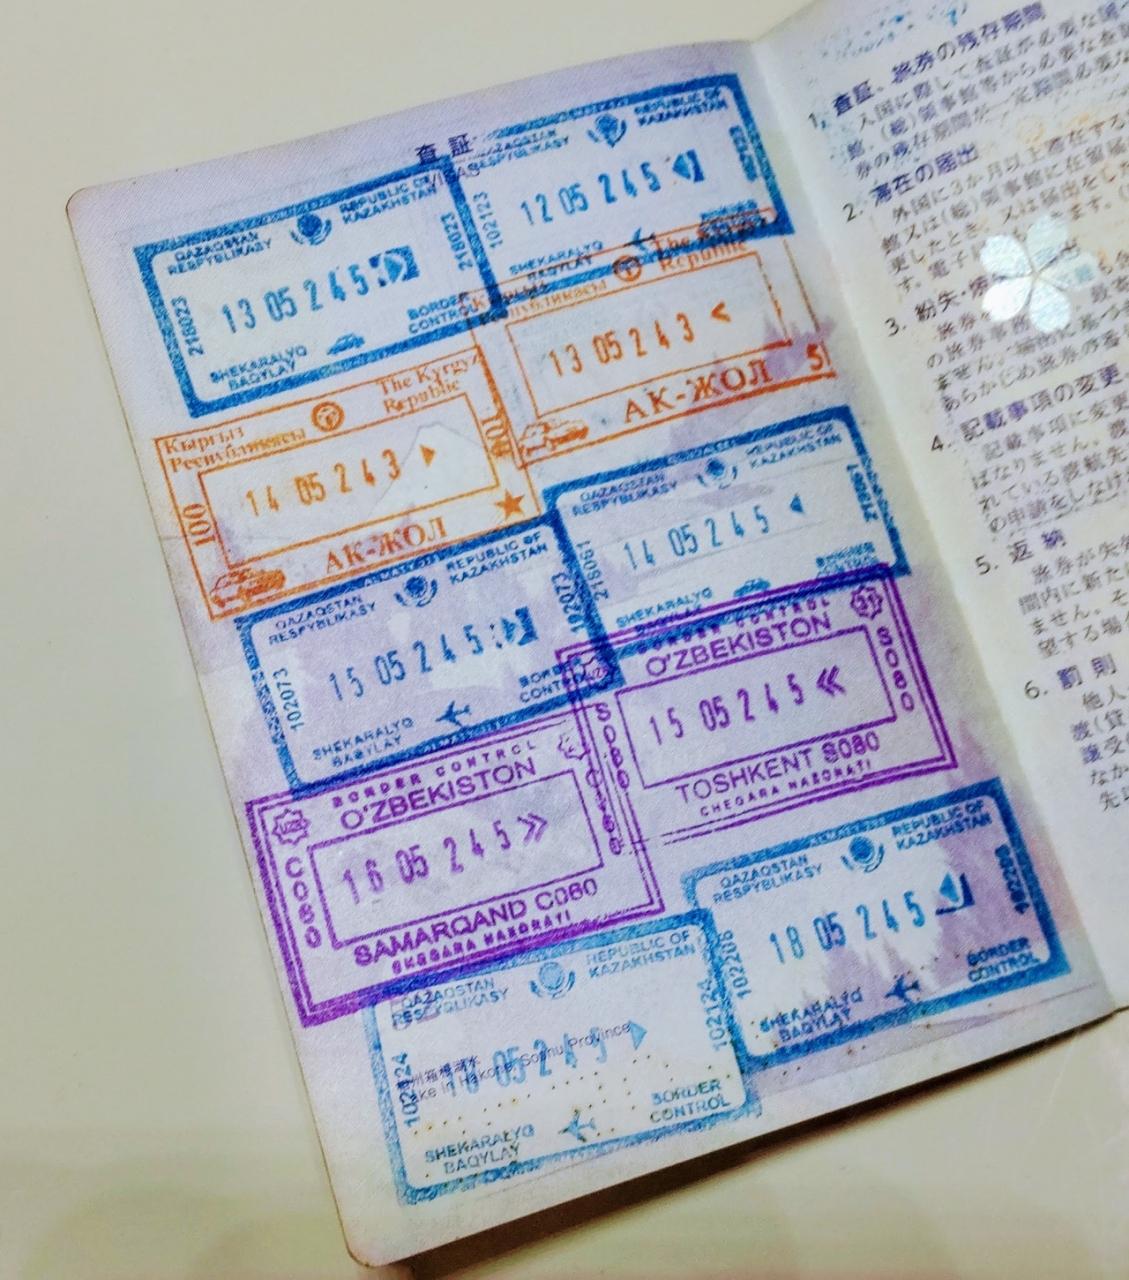 査証
VISAS
QAZAQSTAN
RESPYBLIKASY
REPUBLIC OF
KAZAKHSTAN
102123
12 05 24 5
SHEKARALYQ
BAQYLAY
BORDER
QAZAQSTAN
RESPYBLIKASY
REPUBLIC OF
KAZAKHSTAN
218023
13 05 24 5
218023
SHEKARALYQ
BAQYLAY
BORDER
CONTROL
The Kyrgyz
Republic
13 05 24 3 <
АК-ЖОЛ
Кыргыз
Республикасы
The Kyrgyz
Republic
100
14 05 24 3
100
АК-ЖОЛ
QAZAQSTAN
RESPYBLIKASY
REPUBLIC OF
KAZAKHSTAN
14 05 24 5
SHEKARALYQ
BORDER
CONTROL
QAZAQSTAN
RESPYBLIKASY
REPUBLIC OF
KAZAKHSTAN
102073
15 05 24 5
102073
SHEKARALYQ
BAQYLAY
BORDER
CONTROL
BORDER CONTROL
O'ZBEKISTON
S080
15 05 24 5 «
S080
TOSHKENT S080
CHEGARA NAZORATI
BORDER CONTROL
O'ZBEKISTON
UZB
C060
16 05 24 5 »
C060
SAMARQAND C060
CHEGARA NAZORATI
QAZAQSTAN
RESPYBLIKASY
REPUBLIC OF
KAZAKHSTAN
102206
18 05 24 5
102206
SHEKARALYQ
BAQYLAY
BORDER
CONTROL
QAZAQSTAN
RESPYBLIKASY
REPUBLIC OF
KAZAKHSTAN
102124
05 24 5
102124
相州箱根湖水
Lake in Hakone, Soshu Province
SHEKARALYQ
BAQYLAY
BORDER
CONTROL
1. 査証、旅券の残存期間
入国に際して査証が必要な国へ
(総)領事館等から必要な査証
券の残存期間が一定期間必要な
2. 滞在の届出
外国に3か月以上滞在する
館又は(総)領事館に在留届
更したとき、又は届出をした
3. 紛失・焼
4. 記載事項の変更
記載事項に変更
ばなりません。渡
れている渡航先
の申請をしなけ
5. 返 納
旅券が失効
間内に新た
ません。そ
望する場合
6. 罰 則
他人
渡(貸
譲受
なか
先